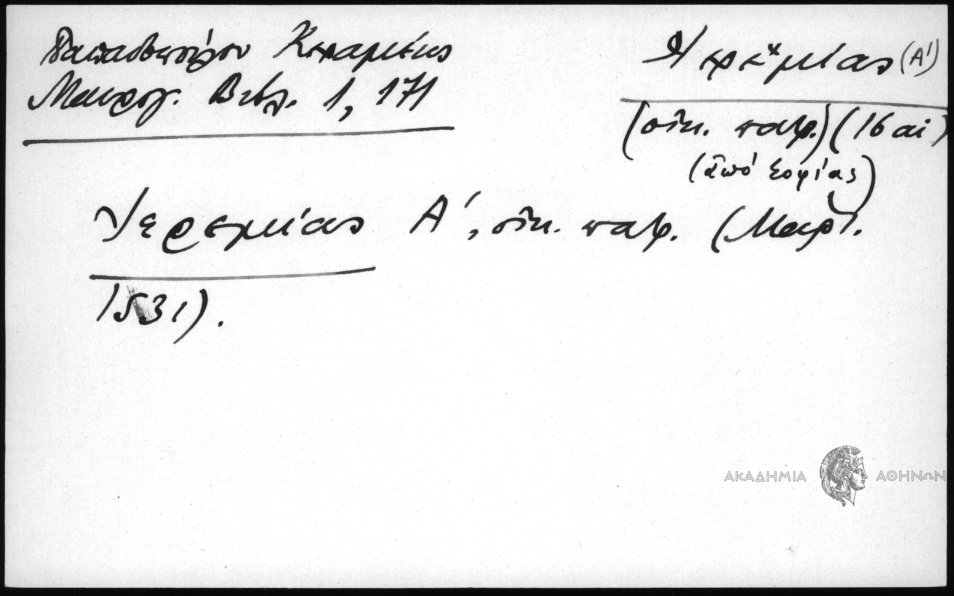 Παπαδοπούλου Κεραμέως
Μαυρογ. Βιβλ. 1, 171
Ἱερεμίας (Α')
(οἰκ. πατρ.) (16 αἰ)
(ἀπό Σοφίας)
Ἱερεμίας Α', οἰκ. πατρ. (Μαρτ.
1531).
ΑΚΑΔΗΜΙΑ ΑΘΗΝΩΝ